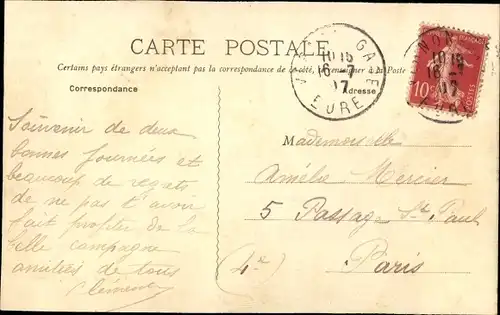 CARTE POSTALE
Certains pays étrangers n'acceptant pas la correspondance de ce côté, se renseigner à la Poste
Correspondance
Adresse
GARE
10 15
16 - 7
07
EURE
NON
10 15
16
07
10c
POSTES
Souvenir de deux
bonnes journées et
beaucoup de regrets
de ne pas t'avoir
fait profiter de la
belle campagne
amitiés de tous
Clémence
Mademoiselle
Amélie Mercier
5 Passage St Paul
(4e)
Paris